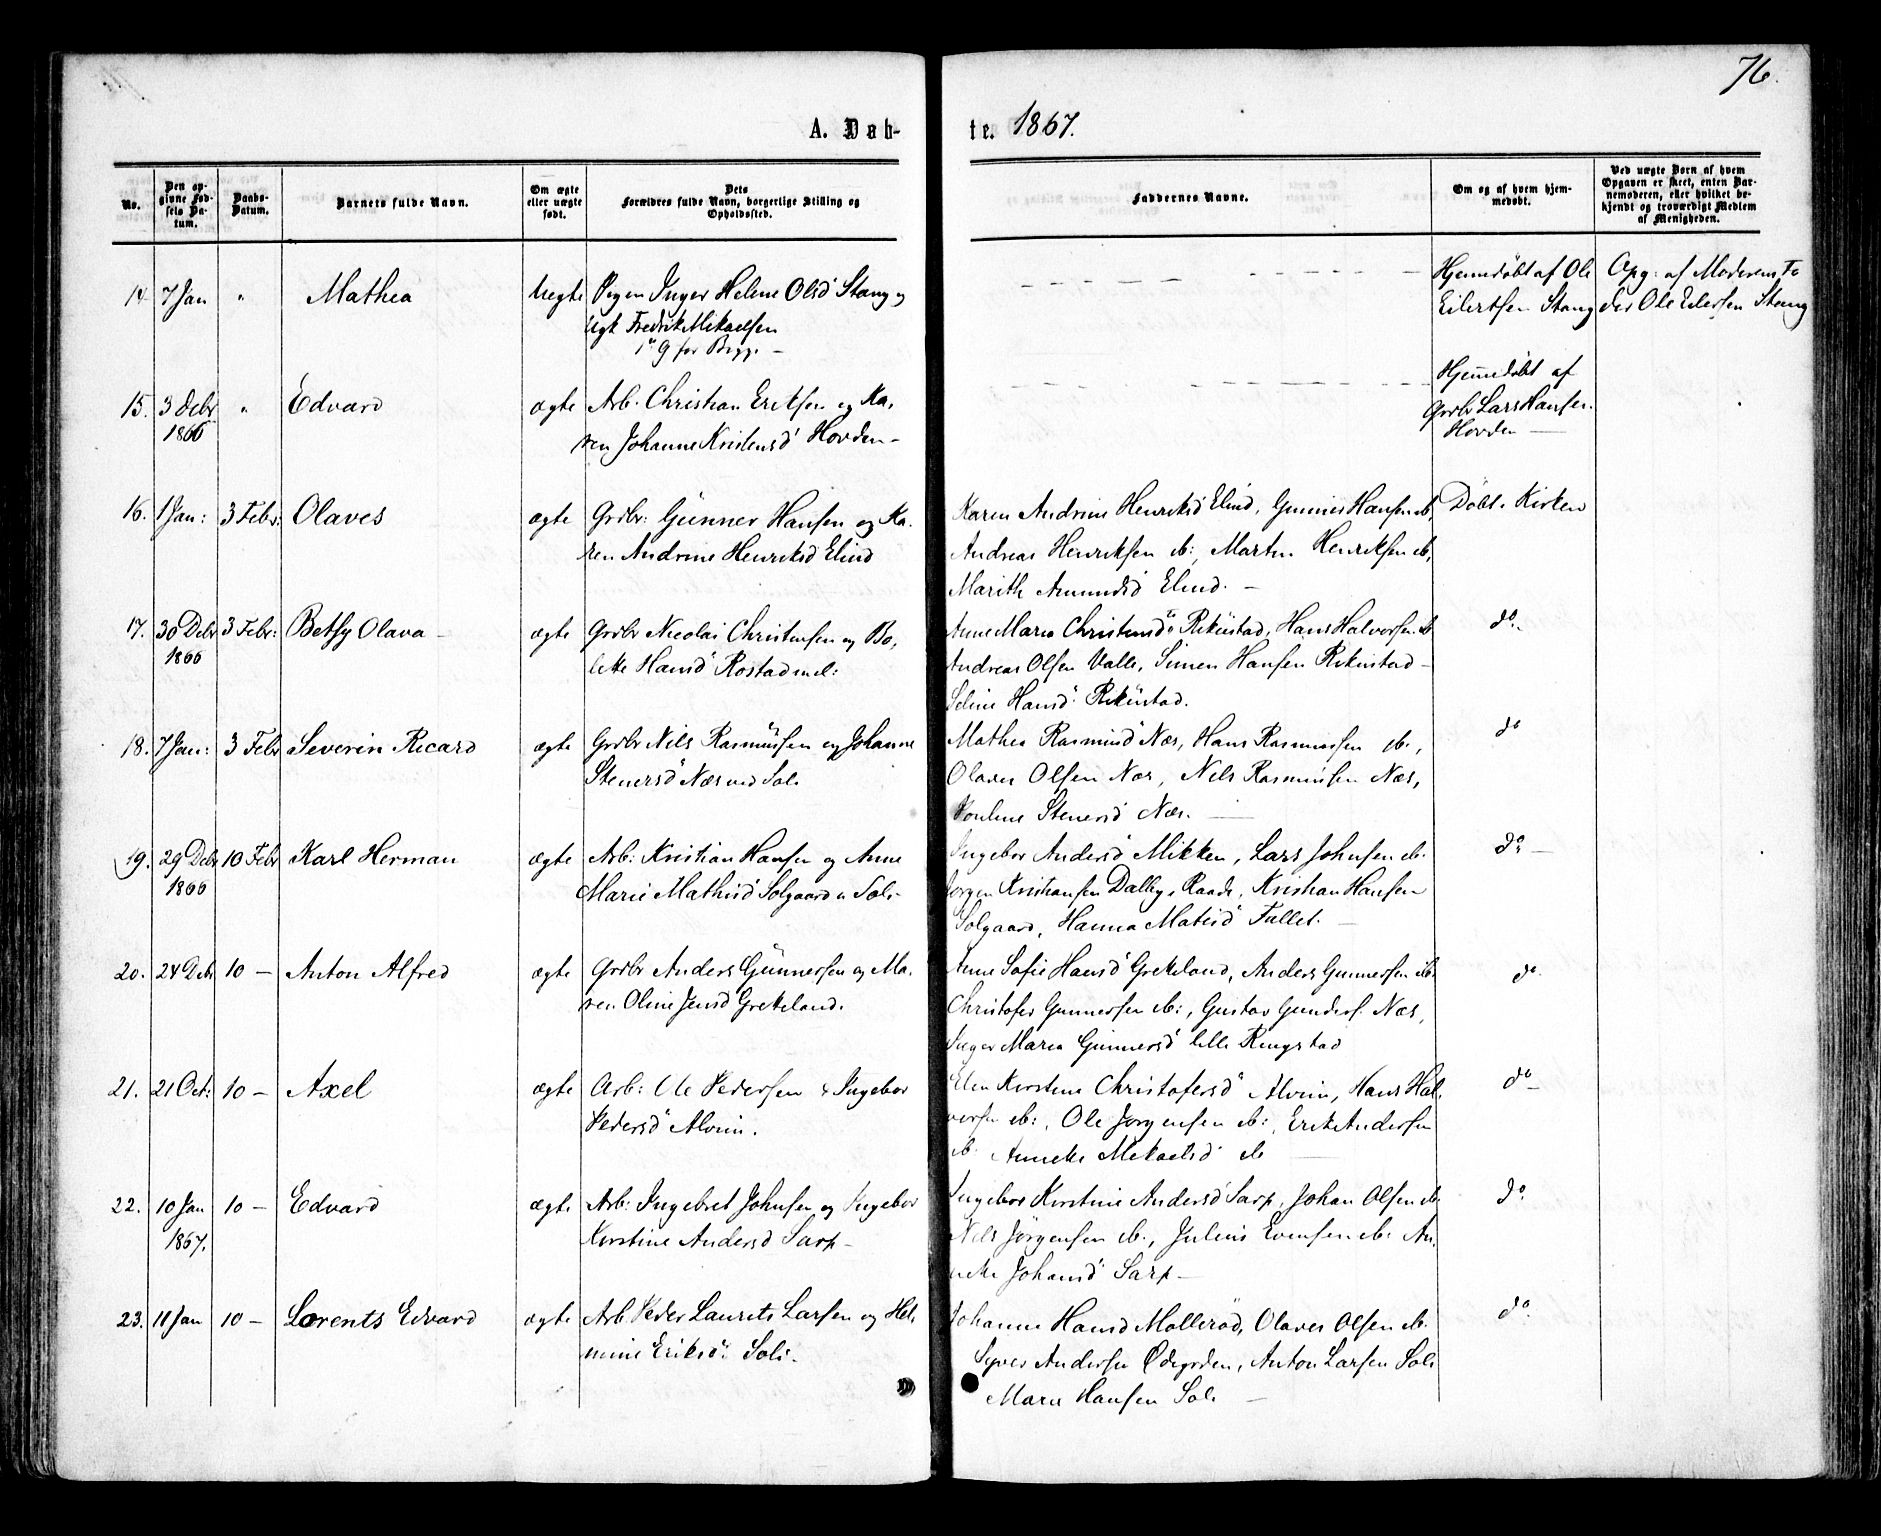 76.
A. Døb-
te. 1867.
No.
Den op-
givne Fød-
sels Da-
tum.
Daabs-
Datum.
Barnets fulde Navn.
Om ægte
eller uægte
født.
Dets
Forældres fulde Navn, borgerlige Stilling og
Opholdssted.
Faddernes Navne.
Om og af hvem hjem-
medøbt.
Ved uægte Børn af hvem
Opgaven er skeet, enten Bar-
nemoderen, eller hvilket be-
kjendt og troværdigt Medlem
af Menigheden.
14 7 Jan " Mathea Uegte Pigen Inger Helene Olsd Stang og
Ugk Fredrik Mikaelsen
1ste G for Begge
Hjemmedøbt af Ole
Eilertsen Stang
Opg: af Moderens Fa
der Ole Eilersen Stang
15. 3 Debr " Edvard ægte Arb. Christian Eriksen og Ka,
1866 ren Johanne Kristensd Horden
Hjemmedøbt af
Grdbr Lars Hansen
Horden
16. 1 Jan: 3 Febr: Olaves ægte Grdbr: Gunner Hansen og Ka,
ren Andrine Henriksd Elind
Karen Andrine Henriksd Elind, Gunner Hansen ib,
Andreas Henriksen ib:, Martin Henriksen ib,
Marith Amundsd Elind.
Døbt i Kirken
17. 30 Debr 3 Febr: Betsy Olava ægte Grdbr Nicolai Christensen og Bo,
1866 lette Hansd Rostad
Anne Maria Christensd Rikustad, Hans Halvorsen ib
Andreas Olsen Valle, Simen Hansen Rikustad
Seline Hansd Rikustad.
do
18. 7 Jan: 3 Febr Severin Ricard ægte Grdbr Nils Rasmussen og Johanne
Stenersd Næs ved Soli
Mathea Rasmusd Næs, Hans Rasmussen ib.,
Olaves Olsen Næs, Nils Rasmussen Næs,
Pouline Stenersd Næs.
do
19. 29 Debr 10 Febr Karl Herman ægte Arb: Kristian Hansen og Anne
1866 Marie Mathisd Solgaard u Soli
Ingebor Andersd Mikken, Lars Johnsen ib.
Jørgen Kristiansen Dalby, Raade, Kristian Hansen
Solgaard, Hanna Matisd Fallet.
do
20. 24 Debr 10 — Anton Alfred ægte Grdbr Anders Gunnersen og Ma,
ren Oline Jensd Grekeland.
Anne Sofie Hansd Grekeland, Anders Gunnersen ib.
Christofer Gunnersen ib:, Gustav Gunders. Næs,
Inger Maria Gunnersd lille Ringstad
do
21. 21 Oct: 10 — Axel ægte Arb: Ole Pedersen & Ingebor
Pedersd Alvim.
Elen Kirstine Christofersd Alvim, Hans Hal,
vorsen ib:, Ole Jørgensen ib:, Erik Andersen
ib. Annette Mekaelsd ib
do
22. 10 Jan 10 — Edvard ægte Arb: Ingebret Johnsen og Ingebor
1867. Kirstine Andersd Sarp
Ingebor Kirstine Andersd Sarp, Johan Olsen ib
Nils Jørgensen ib., Julius Evensen ib. An,
nette Johansd Sarp
do
23. 11 Jan 10 — Lorents Edvard ægte Arb Peder Laurits Larsen og Hel,
mine Eriksd Soli.
Johanne Hansd Møllerød, Olaves Olsen ib.
Syver Andersen Ødegrden, Anton Larsen Soli
Marie Hansen Soli
do